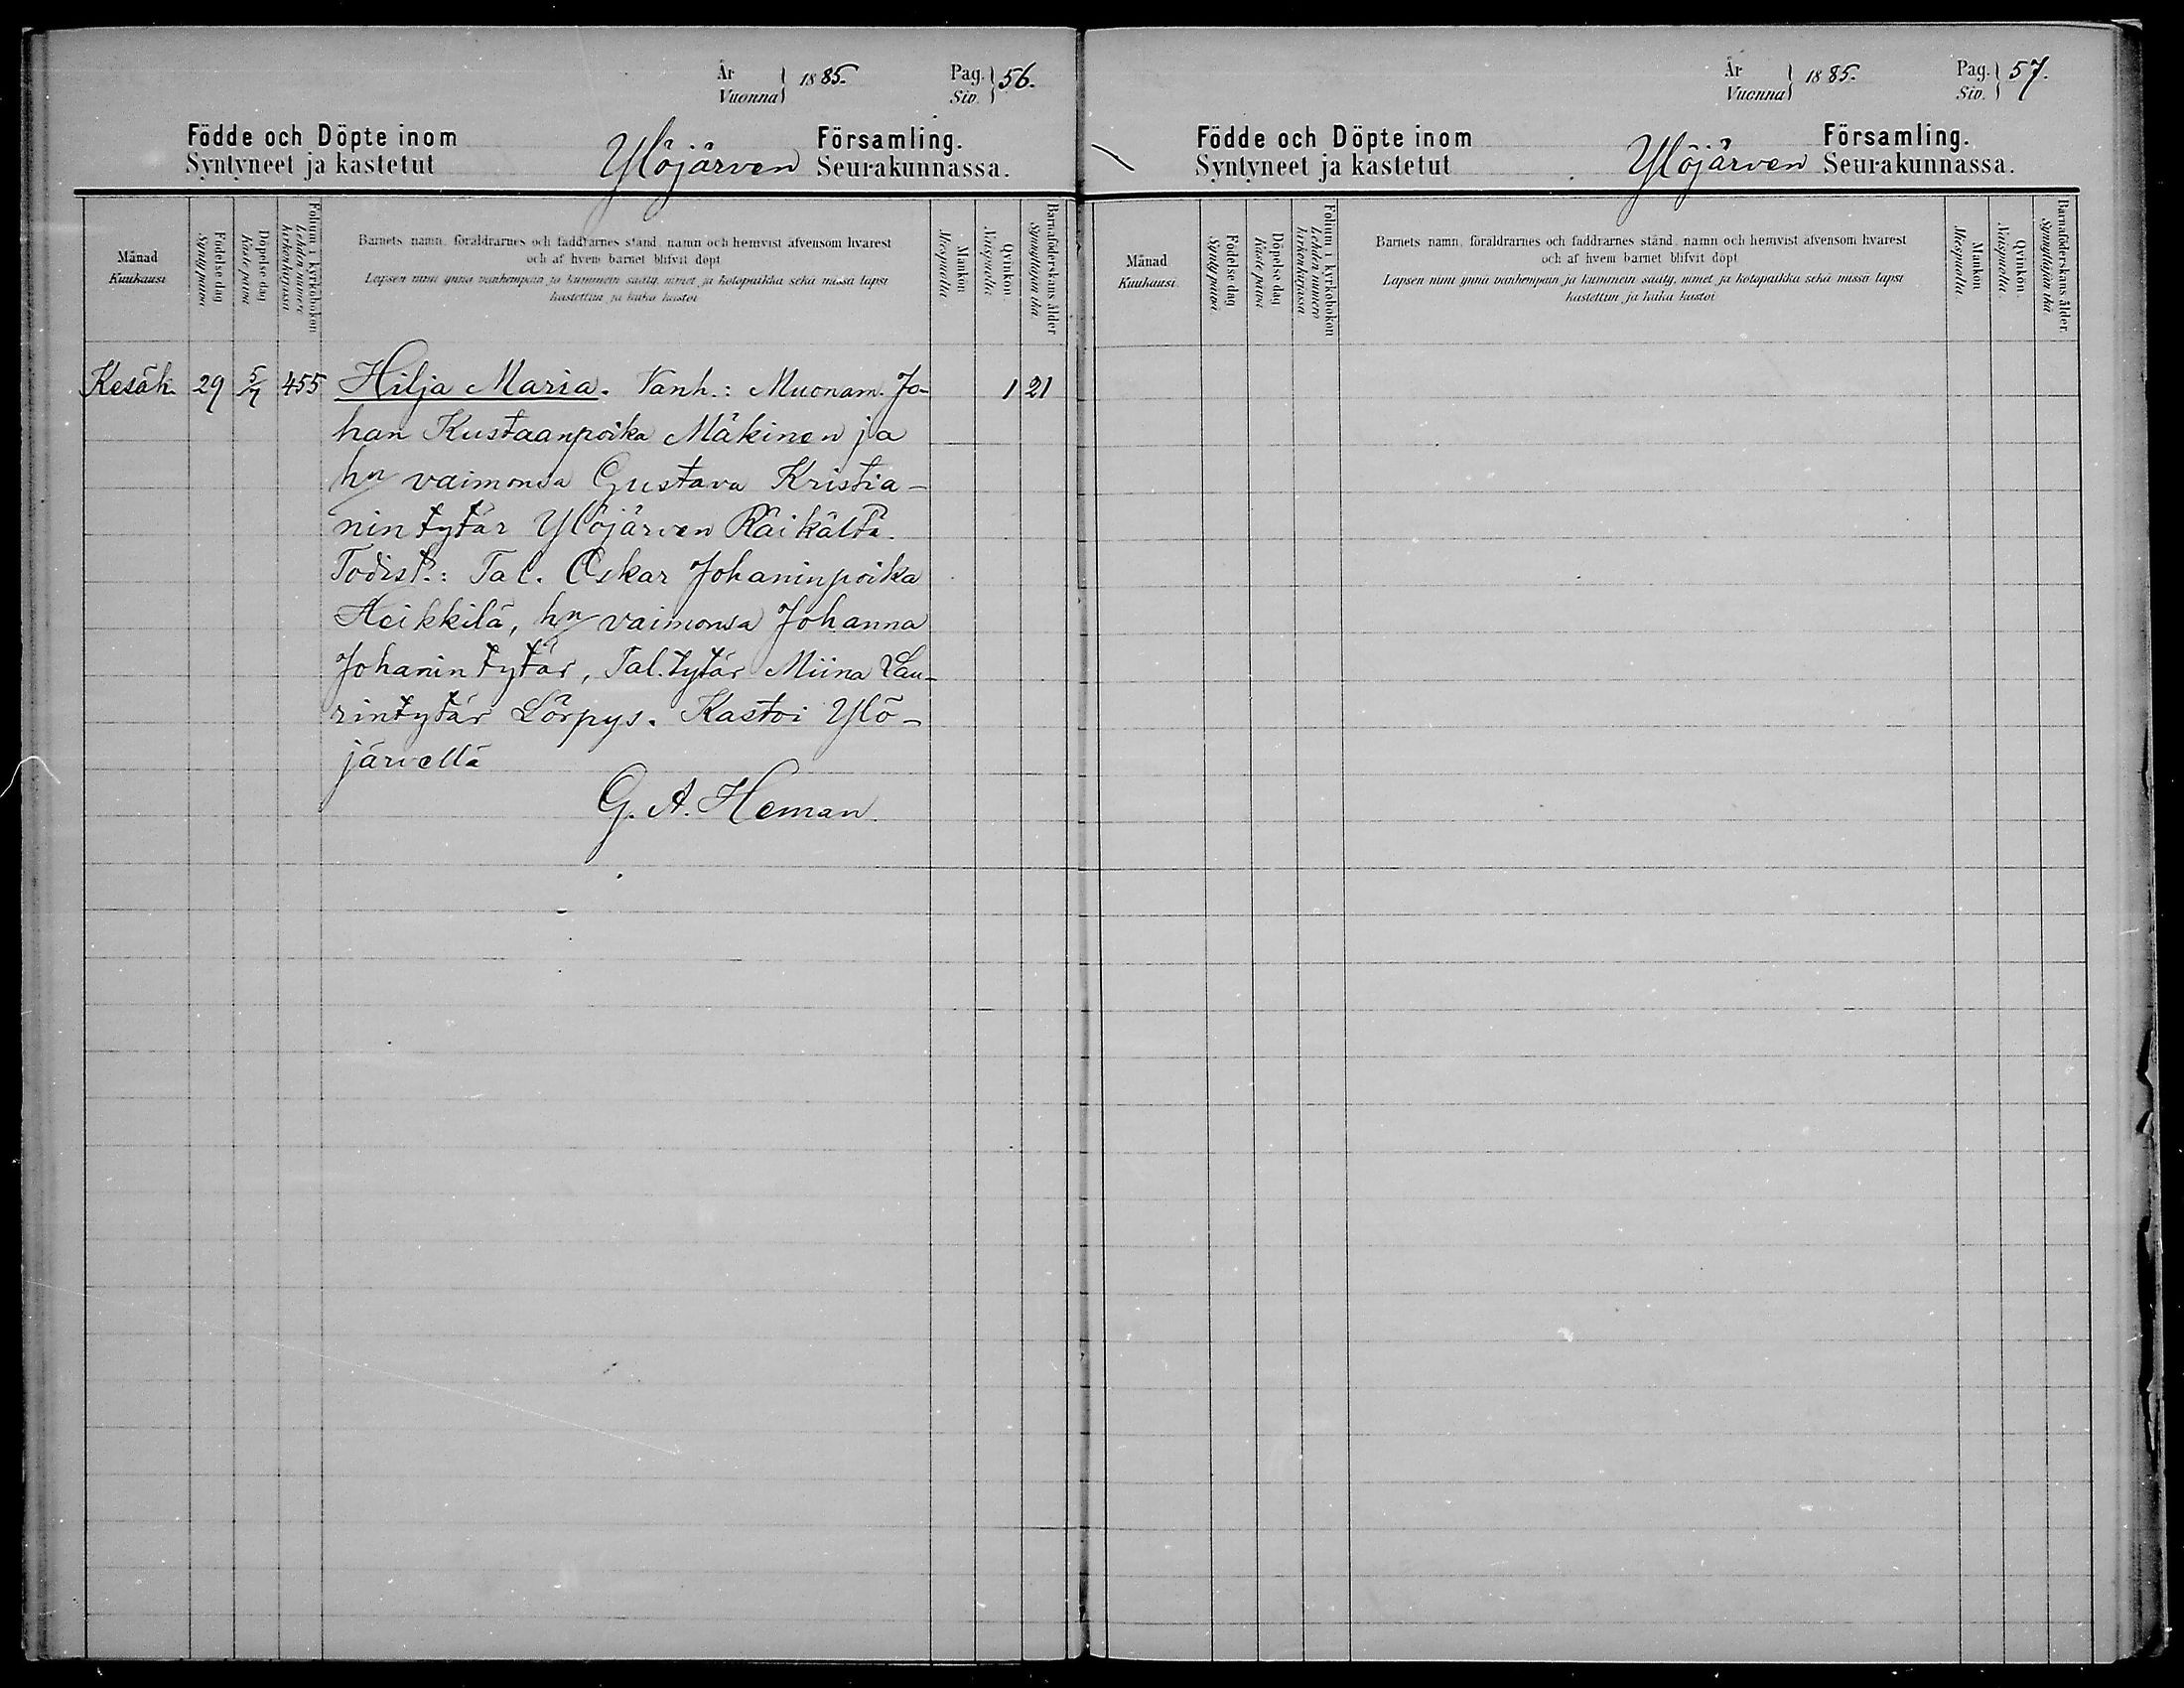 År
Vuonna } 1885.
Pag.
Siv. } 56.
Födde och Döpte inom Församling.
Syntyneet ja kastetut Ylöjärven Seurakunnassa.
Månad
Kuukausi
Födelse dag
Synty päivä
Döpelse dag
Kaste päivä
Folium i kyrkoboken
Lehden numero
kirkonkirjassa
Barnets namn, föräldrarnes och faddrarnes stånd, namn och hemvist äfvensom hvarest
och af hvem barnet blifvit döpt
Lapsen nimi ynnä vanhempain ja kummein sääty, nimet ja kotopaikka sekä missä lapsi
kastettiin ja kuka kastoi
Mankön
Miespuolia
Qvinkön
Naispuolia
Barnaföderskans ålder
Synnyttäjän ikä
Kesäk. 29 5/7 455 Hilja Maria. Vanh.: Muonam. Jo- 1 21
han Kustaanpoika Mäkinen ja
hn vaimonsa Gustava Kristia-
nin tytär Ylöjärven Räikältä.
Todist.: Tal. Oskar Johaninpoika
Heikkilä, hn vaimonsa Johanna
Johanin tytär, Tal. tytär Miina Lau-
rintytär Lörpys. Kastoi Ylö-
järvellä
G. A. Heman.
År
Vuonna } 1885.
Pag.
Siv. } 57.
Födde och Döpte inom Församling.
Syntyneet ja kastetut Ylöjärven Seurakunnassa.
Månad
Kuukausi
Födelse dag
Synty päivä
Döpelse dag
Kaste päivä
Folium i kyrkoboken
Lehden numero
kirkonkirjassa
Barnets namn, föräldrarnes och faddrarnes stånd, namn och hemvist äfvensom hvarest
och af hvem barnet blifvit döpt
Lapsen nimi ynnä vanhempain ja kummein sääty, nimet ja kotopaikka sekä missä lapsi
kastettiin, ja kuka kastoi
Mankön
Miespuolia
Qvinkön.
Naispuolia
Barnaföderskans ålder.
Synnyttäjän ikä